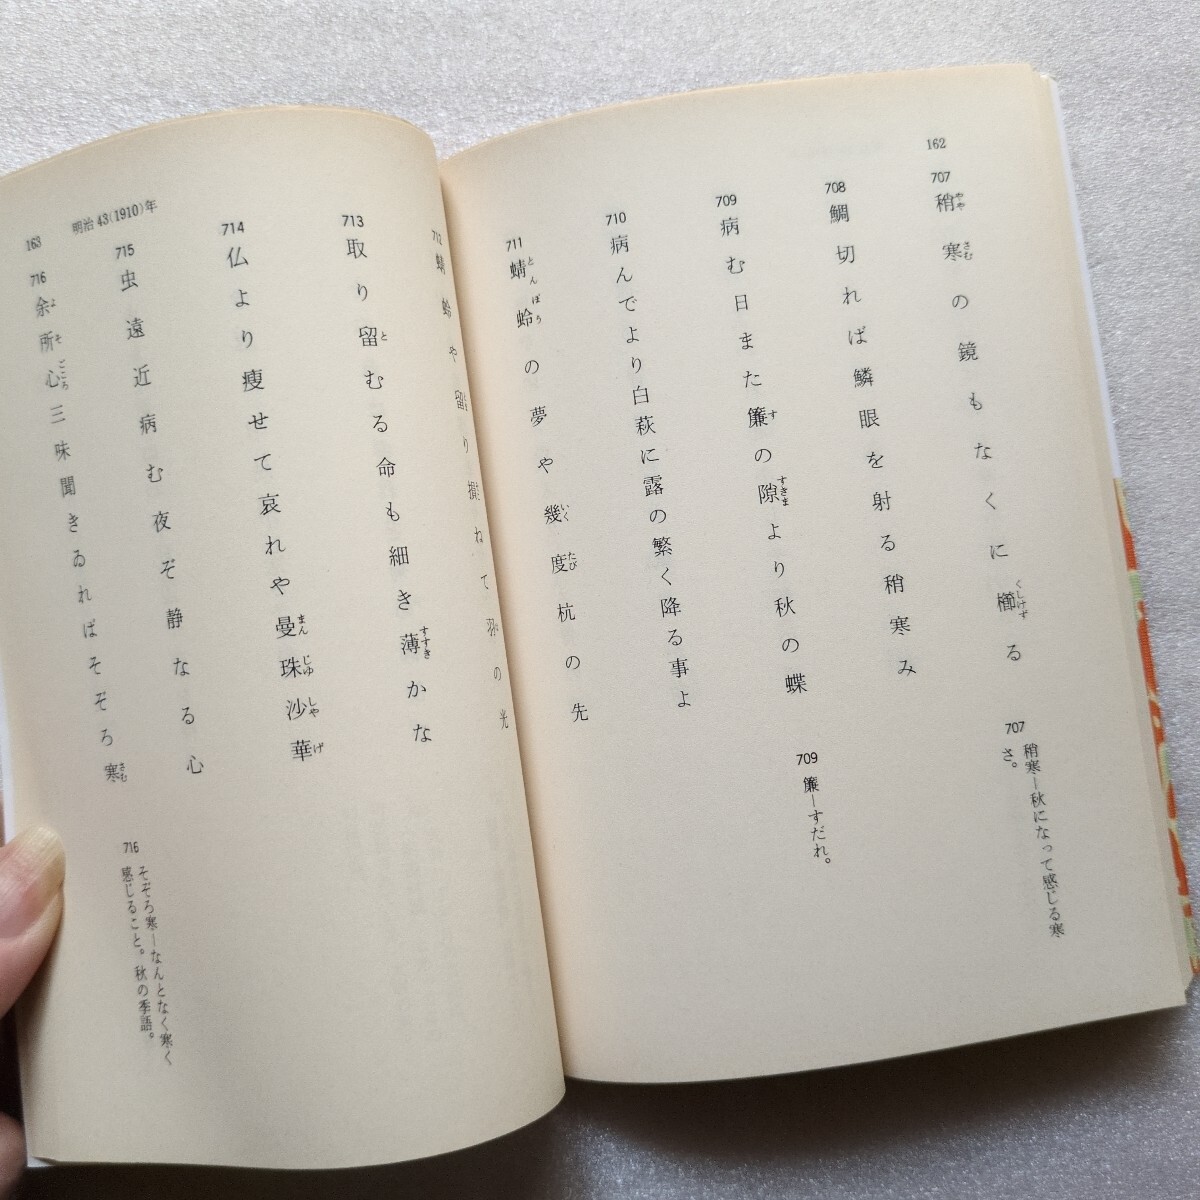 162
707
稍寒の鏡もなくに櫛る
やや
さむ
くしけず
708
鯛切れば鱗眼を射る稍寒み
709
病む日また簾の隙より秋の蝶
す
すきま
710
病んでより白萩に露の繁く降る事よ
711
蜻蛉の夢や幾度杭の先
とんぼり
いく
たび
707
稍寒―秋になって感じる寒
さ。
709
簾―すだれ。
712
蜻蛉や留り損ねて羽の光
713
取り留むる命も細き薄かな
と
すすき
714
仏より痩せて哀れや曼珠沙華
まん
じゆ
しや
げ
715
虫遠近病む夜ぞ静なる心
716
余所心三味聞きゐればそぞろ寒
よ
そ
ごころ
さむ
716
そぞろ寒―なんとなく寒く
感じること。秋の季語。
163
明治43(1910)年